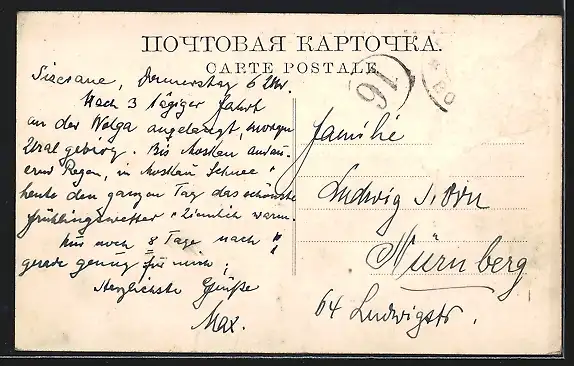 ПОЧТОВАЯ КАРТОЧКА.
CARTE POSTALE
91
BO
Donnerstag 6 Uhr.
Nach 3 tägiger Fahrt
an der Wolga angelangt, morgen
Uralgebirg. Bis Moskau andau-
ernd Regen, in Moskau Schnee
heute den ganzen Tag das schönste
Frühlingswetter ziemlich warm.
Nur noch 8 Tage nach
gerade genug für mich;
Herzlichste Grüße
Max.
Familie
Ludwig
Nürnberg
64 Ludwigstr.